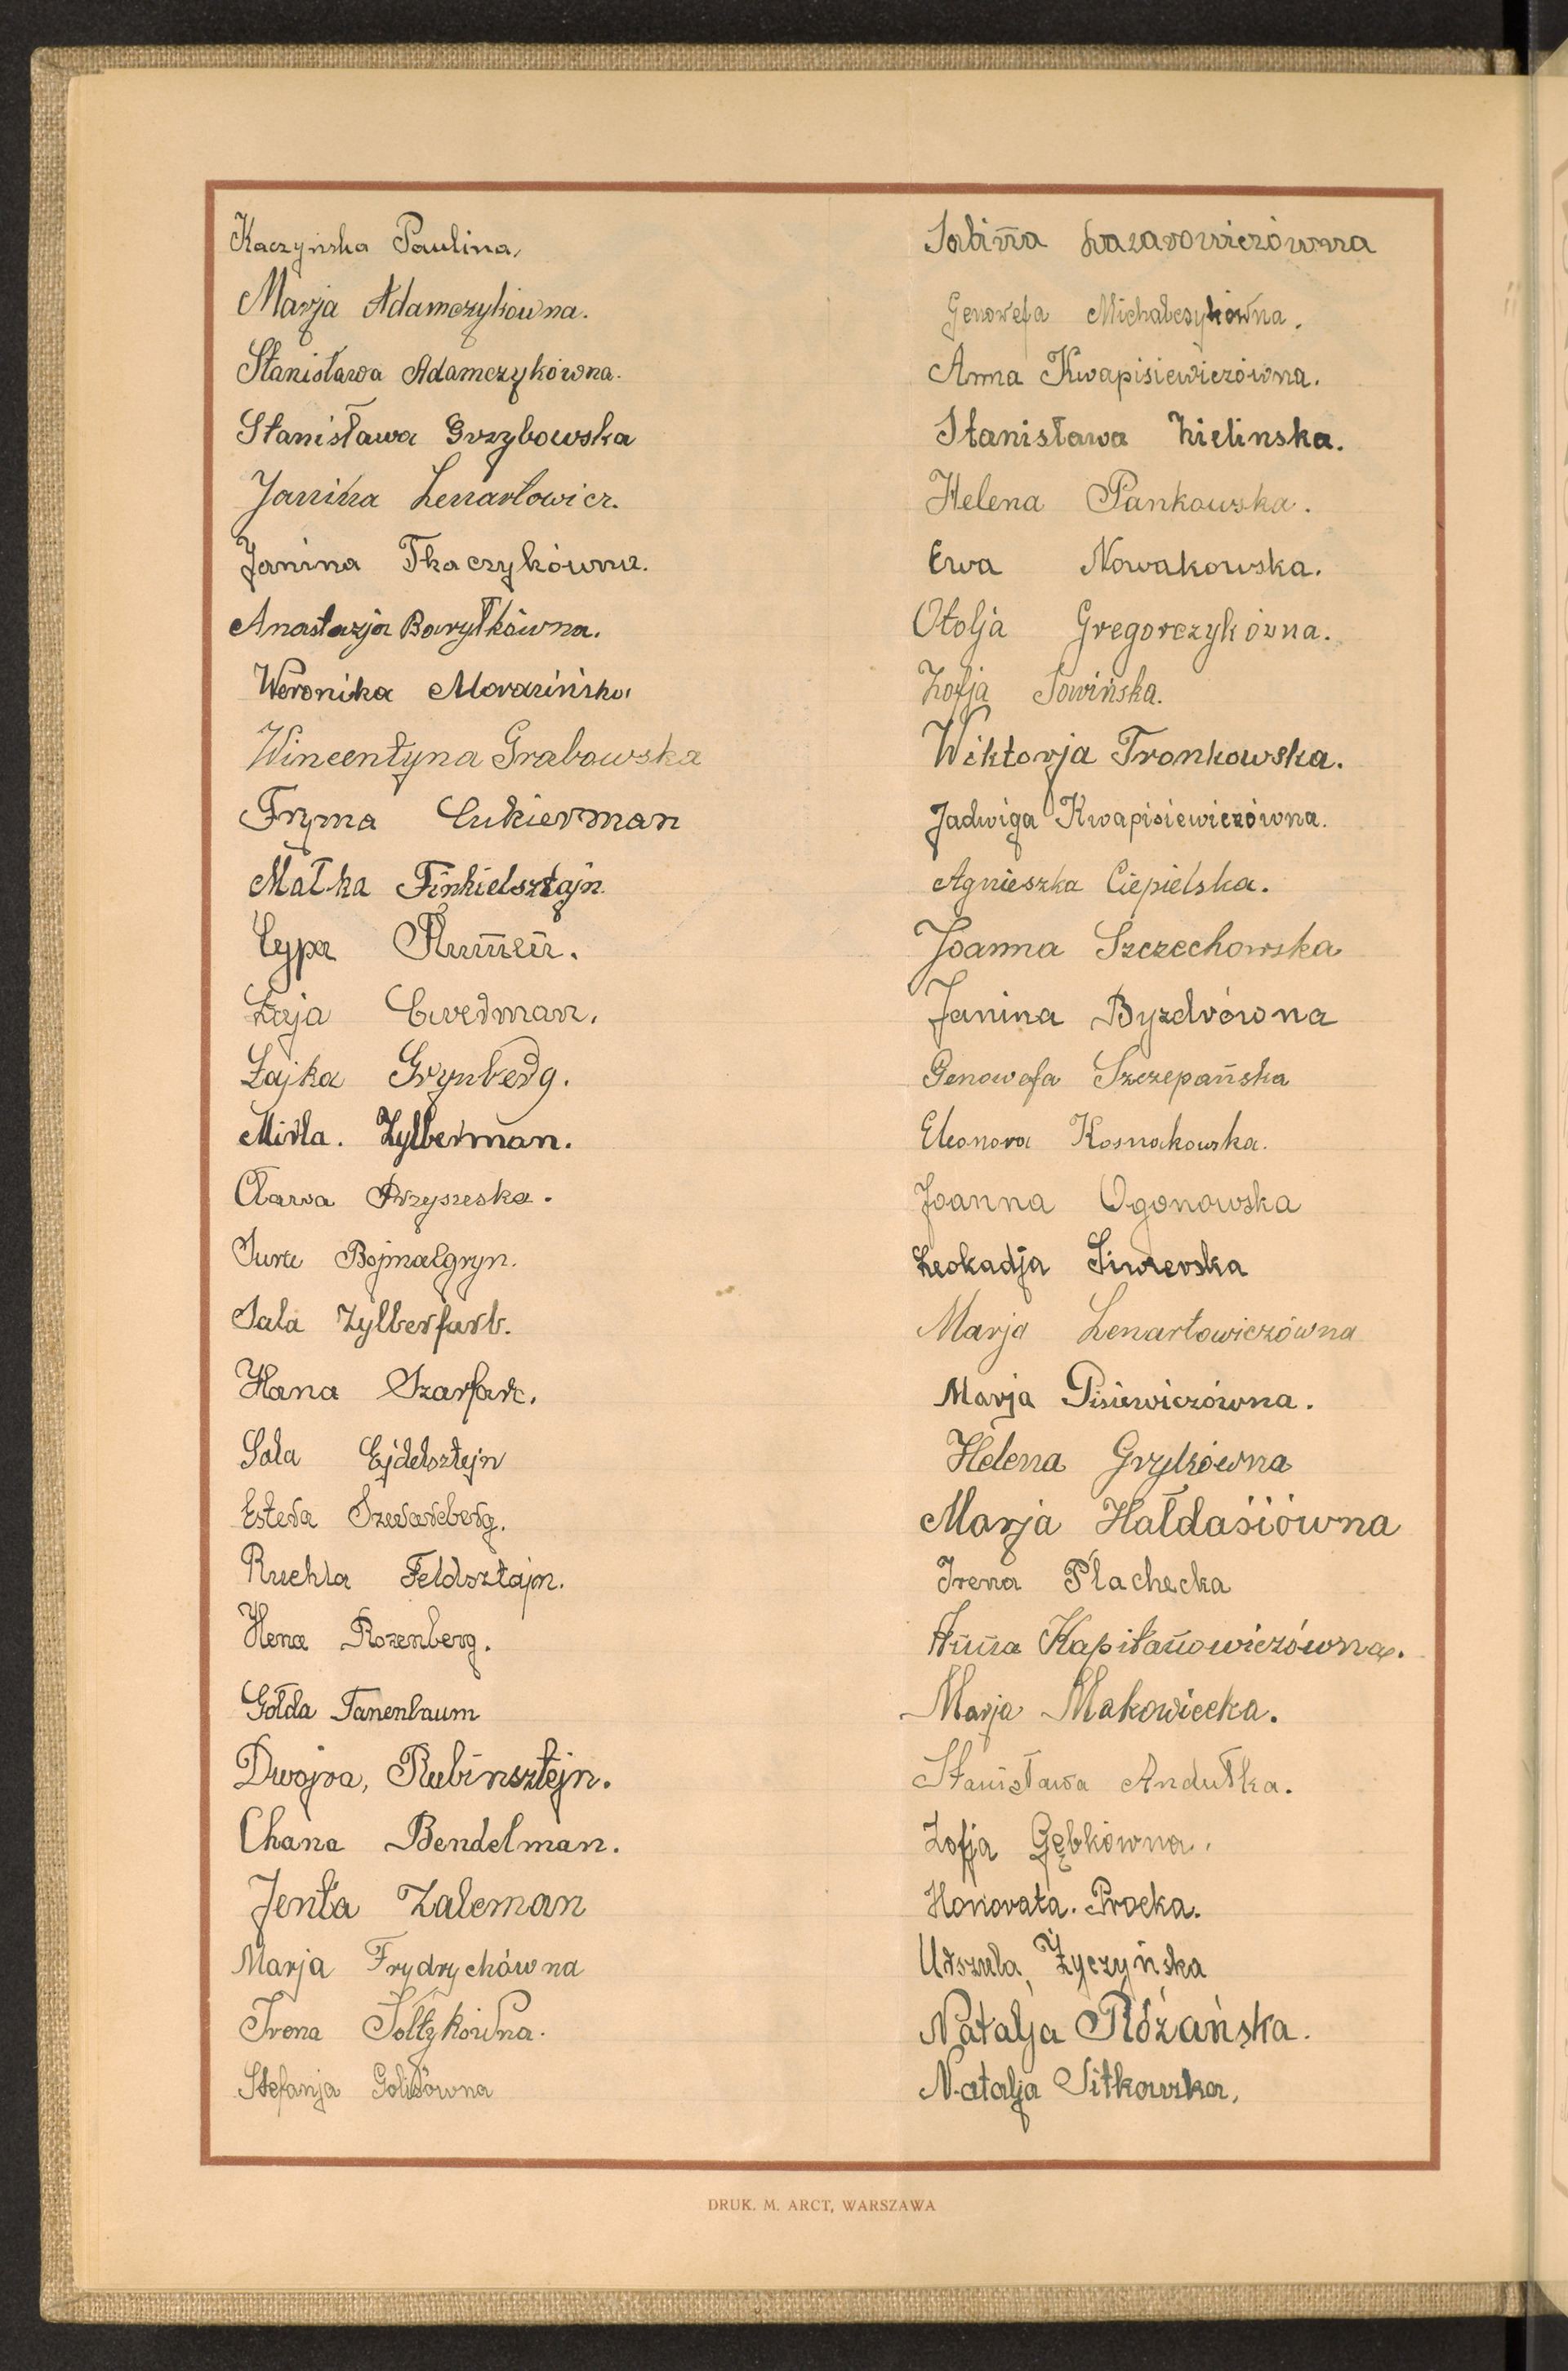 Kaczyńska Paulina,
Marja Adamczykówna.
Stanisława Adamczykówna.
Stanisława Grzybowska
Janina Lenartowicz.
Janina Tkaczykówna.
Anastazja Baryłkówna.
Weronika
Wincentyna Grabowska
Fryma Cukierman
Małka Finkielsztajn.
Cypa
Łaja Cwerman.
Łajka Grynberg.
Mirla. Zylberman.
Bojmalgryn.
Sala Zylberfarb.
Hana Szarfarc.
Sala Ejdelsztejn
Estera Szwarcberg.
Ruchla Feldsztajn.
Hena Rozenberg.
Gołda Tanenbaum
Dwojra, Rubinsztejn.
Chana Bendelman.
Jenta Zalcman
Marja Frydrychówna
Irena Sołtykówna.
Stefanja
Sabina Łazarowiczówna
Genowefa Michalczykówna.
Anna Kwapisiewiczówna.
Stanisława Zielinska.
Helena Pankowska.
Ewa Nowakowska.
Otolja Gregorczykówna.
Zofja Sowińska.
Wiktorja Tronkowska.
Jadwiga Kwapisiewiczówna.
Agnieszka Ciepielska.
Joanna Szczechowska
Janina Byzdrówna
Genowefa Szczepańska
Eleonora Kosmakowska.
Joanna Ogonowska
Leokadja
Marja Lenartowiczówna
Marja Pisiewiczówna.
Helena Grzykówna
Marja Hałdasiówna
Irena Płachecka
Anna Kapitanowiczówna.
Marja Makowiecka.
Stanisława Andułka.
Zofja Gębkówna.
Honorata. Procka.
Urszula, Życzyńska
Natalja Różańska.
Natalja Sitkowska,
DRUK. M. ARCT, WARSZAWA